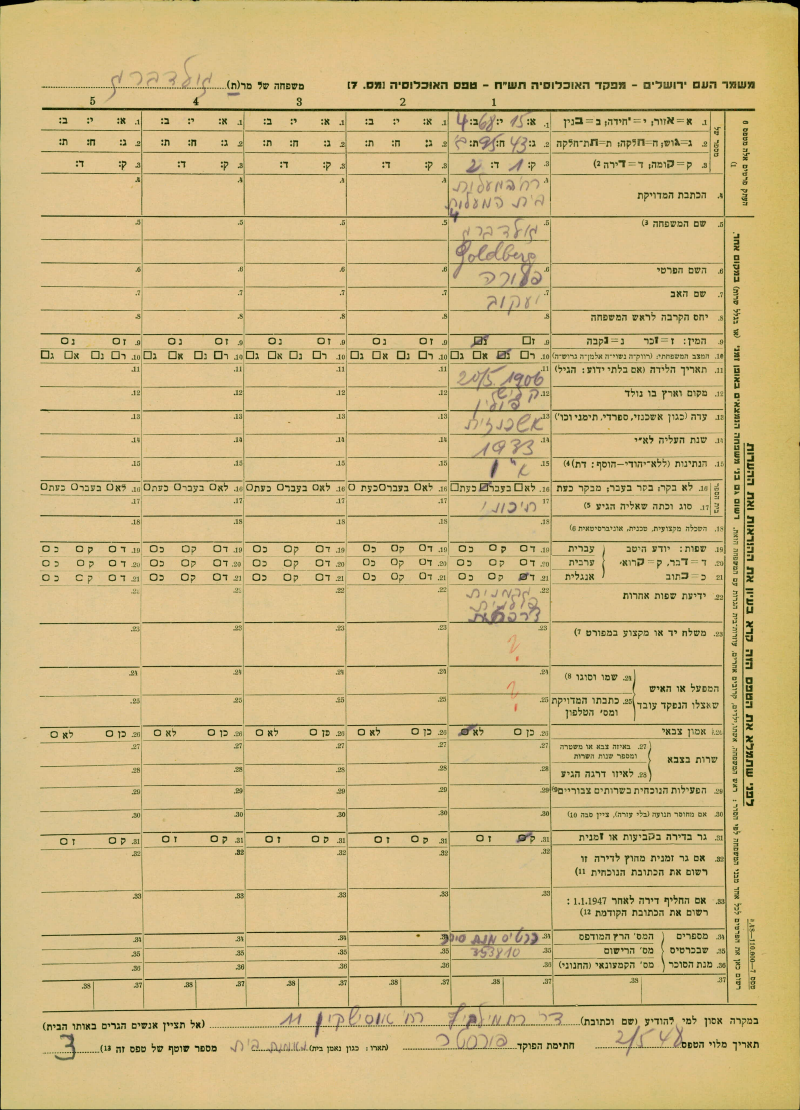 משמר העם ירושלים – מפקד האוכלוסיה תש"ח – טפס האוכלוסיה (מס. 7)
משפחה של מר(ת) גולדברג
1 2 3 4 5
1. א=אזור; י=יחידה; ב=בנין
1. א: 15 י: 68 ב: 4
1. א: י: ב:
1. א: י: ב:
1. א: י: ב:
1. א: י: ב:
2. ג=גוש; ח=חלקה; ת=תת־חלקה
2. ג: 43 ח: 95 ת:
2. ג: ח: ת:
2. ג: ח: ת:
2. ג: ח: ת:
2. ג: ח: ת:
3. ק=קומה; ד=דירה (2
ק: 1 ד: 2
3. ק: ד:
3. ק: ד:
3. ק: ד:
3. ק: ד:
4. הכתבת המדויקת
רח' המעלות
בית המעלות
4
5. שם המשפחה (3
גולדברג
Goldberg
6. השם הפרטי
פלורה
7. שם האב
יעקוב
8. יחס הקרבה לראש המשפחה
9. המין: ז=זכר נ=נקבה
9. ז נ
10. המצב המשפחתי: (רווק/ה נשוי/ה אלמן/ה גרוש/ה)
10. ר נ א ג
11. תאריך הלידה (אם בלתי ידוע: הגיל)
20/5 1906
12. מקום וארץ בו נולד
קליש
פולין
13. עדה (כגון אשכנזי, ספרדי, תימני וכו')
אשכנזית
14. שנת העליה לא"י
1933
15. הנתינות (ללא־יהודי–הוסף: דת) (4
א"י
16. לא בקר; בקר בעבר; מבקר כעת
16. לא בעבר כעת
17. סוג וכתה שאליה הגיע (5
תיכוני
18. השכלה מקצועית, טכנית, אוניברסיטאית (6
19. שפות: יודע היטב עברית
20. ד=דבר, ק=קרוא, ערבית
21. כ=כתוב אנגלית
ד ק כ
22. ידיעת שפות אחרות
גרמנית
פולנית
צרפתית
23. משלח יד או מקצוע במפורט (7
?
המפעל או האיש
שאצלו הנפקד עובד
24. שמו וסוגו (8
?
25. כתבתו המדויקת
ומס' הטלפון
26. אמון צבאי
26. כן לא
שרות בצבא
27. באיזה צבא או משטרה
ומספר שנות השרות
28. לאיזו דרגה הגיע
29. הפעילות הנוכחית בשרותים צבוריים (9
30. אם מחוסר תנועה (בלי עזרה), ציין סבה (10
31. גר בדירה בקביעות או זמנית
31. ק ז
32. אם גר זמנית מחוץ לדירה זו
רשום את הכתובת הנוכחית (11
33. אם החליף דירה לאחר 1.1.1947 :
רשום את הכתובת הקודמת (12
מספרים
שבכרטיס
מנת הסוכר
34. המס' הרץ המודפס
כרטיס מנת סוכר
35. מס' הרישום
353810
36. מס' הקמעונאי (החנוני)
37. 38.
במקרה אסון למי להודיע (שם וכתובת) רח' אוסישקין 11 (אל תציין אנשים הגרים באותו הבית)
תאריך מלוי הטפס 2/5 48 חתימת הפוקד פורסטר (תארו: כגון נאמן בית) נאמנת בית מספר שוטף של טפס זה (13 3
לפני שתמלא את הטפס הזה קרא בעיון את ההוראות ואת ההערות